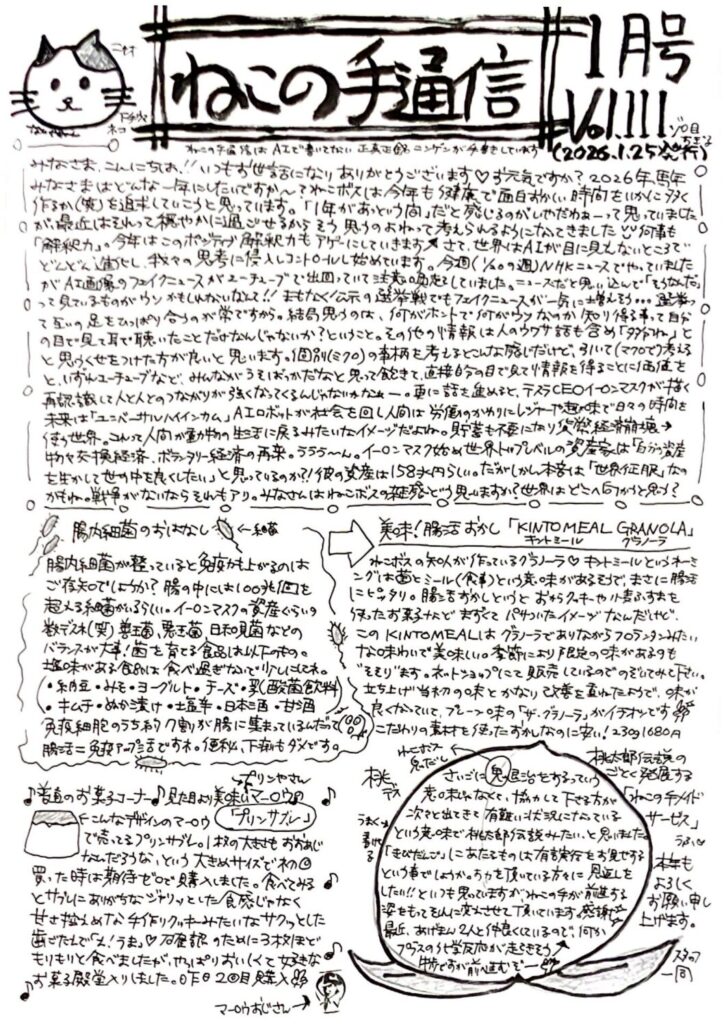 ねこの手通信
1月号
Vol.111 ゾロ目
(2026.1.25発行)
ねこの手通信はAIで書いてない正真正銘ニンゲンが手書きしています
みなさま、こんにちは!!いつもお世話になりありがとうございます♡お元気ですか?2026年、馬年
みなさまはどんな一年にしたいですか〜?ねこボスは今年も健康で面白おかしい時間をいかに多く
作るか(笑)を追求していこうと思っています。「1年があっという間」だと感じるのがいやだわぁーって思っていました
が、最近はそれって穏やかに過ごせるからそう思うのよねって考えられるようになってきました 何事も
「解釈力」。今年はこのポジティブ解釈力もアゲーにしていきます さて、世界はAIが目に見えないところで
どんどん進化し、我々の思考に侵入しコントロールし始めています。今週(1/20の週)NHKニュースでやっていました
がAI画像のフェイクニュースがユーチューブで出回っていて注意喚起してました。ニュースだと思い込んで「そうなんだ」
って見ているものがウソかもしれないなんて!!まもなく公示の選挙戦でもフェイクニュースが一気に増えそう…選挙って
互いの足をひっぱり合うのが常ですから。結局思うのは、何がホントで何がウソなのか知り得る事って自分
の目で見て耳で聴いたことだけなんじゃないか?ということ。その他の情報は人のウワサ話も含め「タブンね」と
思うくせをつけた方が良いと思います。個別(ミクロ)の事柄を考えるとこんな感じだけど、引いて(マクロで)考える
と、いずれユーチューブなど、みんながうそばっかだなと思って飽きて、直接自分の目で見て情報を得ることに価値を
再認識して人と人とのつながりが強くなってくるんじゃないかなぁー。更に話を進めると、テスラCEOイーロンマスクが描く
未来は「ユニバーサルハイインカム」AIロボットが社会を回し人間は労働のかわりにレジャーや趣味で日々の時間を
使う世界。これって人間が動物の生活に戻るみたいなイメージだよね。貯蓄も不要になり貨幣経済崩壊→
物々交換経済、ボランタリー経済の再来。ううう〜ん。イーロンマスク始め世界トップレベルの資産家は「自分の資産
を生かして世の中を良くしたい」と思っているのか?!彼の資産は158兆円らしい。だがしかし本音は「世界征服」なの
かもね。戦争がないならそれもアリ。みなさんはねこボスの雑感どう思いますか?世界はどこへ向かうと思う?
腸内細菌のおはなし ←細菌
腸内細菌が整っていると免疫が上がるのは
ご存知でしょうか?腸の中には100兆個を
超える細菌がいるらしい。イーロンマスクの資産ぐらいの
数デスネ(笑)善玉菌、悪玉菌、日和見菌などの
バランスが大事!菌を育てる食品は以下のもの。
塩味がある食品は食べ過ぎないで少しづつね。
・納豆・みそ・ヨーグルト・チーズ・乳酸菌飲料
・キムチ・ぬか漬け・土豆辛・日本酒・甘酒
免疫細胞のうち約7割が腸に集まっているんだって
腸活=免疫アップ活ですネ。便秘、下痢もダメです。
美味!腸活おかし「KINTOMEAL GRANOLA」
キントミール グラノーラ
ねこボスの知人が作っているグラノーラ♡キントミールというネーミ
ングは菌とミール(食事)という意味があるそうで、まさに腸活
にピッタリ。腸活おかしというとおからクッキーや小麦ふすまを
使ったお菓子などまずくてパサついたイメージなんだけど、
このKINTOMEALはグラノーラでありながらフロランタンみたい
な味わいで美味しい。季節により限定の味があるのも
"そそり"ます。ネットショップにて販売しているのでのぞいてみて下さい。
立ち上げ当初の味とかなり改善を重ねたようで、味が
良くなっていて、プレーン味の「ザ・グラノーラ」がイチオシです
こだわりの素材を使ったおかしなのに安い!230g1680円
♪普通のお菓子コーナー♪見た目より美味しいマーロウの
→プリンやさん
「プリンサブレ」
こんなデザインのマーロウ
で売ってるプリンサブレ。1枚の大きさもおおあじ
なんだろうな、という大きめサイズで初回
買った時は期待ゼロで購入しました。食べてみる
とサブレにありがちなジャリッとした食感じゃなく
甘さ控えめな手作りクッキーみたいなサクッとした
歯ごたえで「え!うま。♡石窯報のために3枚ほど
もりもりと食べましたが、やっぱりおいしくて大好きな
お菓子殿堂入りしました。昨日2回目購入
マーロウおじさん→
ねこボス
鬼だし
桃デス
うまく書けてる
さいごに鬼退治をするっていう
意味じゃなくて、協力して下さる方が
次々と出てきて有難い状況になっている
という意味で桃太郎伝説みたい、と思いました
「きびだんご」にあたるものは有言実行をお見せする
という事でしょうか。お力を頂いている方々に恩返しを
したい!!といつも思っていますがねこの手が前進する
姿をもってそれに変えさせて頂いています。感謝
最近、あけぼん2人と仲良くているので、何か
プラスの化学反応が起きそう
桃太郎伝説の
ごとく発展する
「ねこの手メイド
サービス」
本年も
よろしく
お願い申し
上げます。
スタッフ
一同